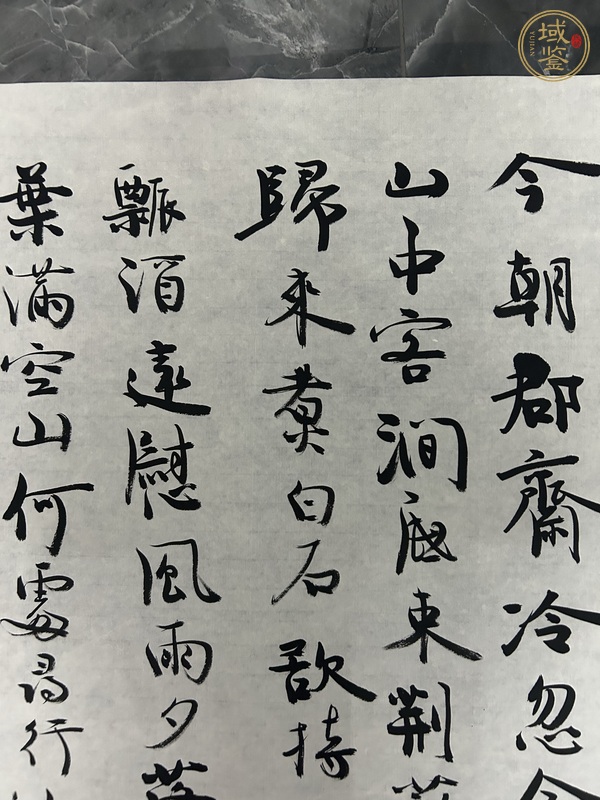 今朝郡齋冷忽念
山中客澗底東荆薪
歸來煑白石欲持
瓢酒遠慰風雨夕落
葉滿空山何處尋行
域鉴
YUJIAN